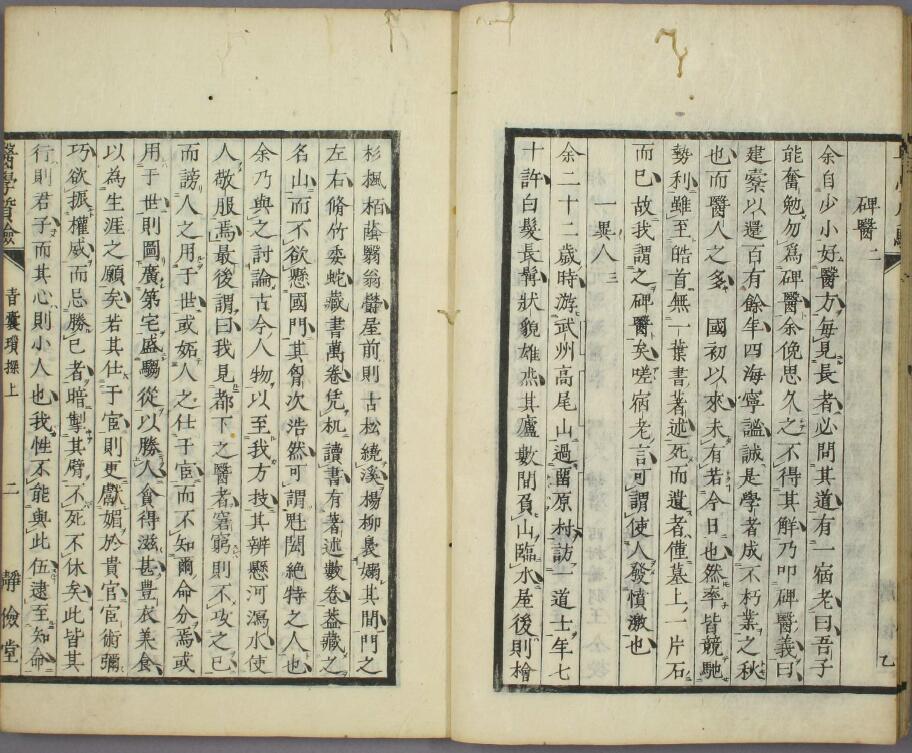 碑醫二
余自少小好醫方毎見長者必問其道有一宿老曰吾子
能奮勉勿爲碑醫余俛思久之不得其解乃叩碑醫義曰
建櫜以還百有餘年四海寧謐誠是學者成不朽業之秋
也而醫人之多 國初以來未有若今日也然率皆競馳
勢利雖至皓首無一葉書著述死而遺者僅墓上一片石
而已故我謂之碑醫矣嗟宿老言可謂使人發憤激也
一異人三
余二十二歲時游武州高尾山過畱原村訪一道士年七
十許白髮長鬚狀貌雄杰其廬數間負山臨水屋後則檜
杉楓栢蔭翳蓊鬱屋前則古松繞溪楊柳裊嫋其間門之
左右脩竹委蛇藏書萬卷凭机讀書有著述數卷葢藏之
名山而不欲懸國門其胷次浩然可謂魁閎絶特之人也
余乃與之討論古今人物以至我方技其辨懸河瀉水使
人敬服焉最後謂曰我見都下之醫者窘窮則不攻之已
而謗人之用于世或妬人之仕于宦而不知爾命分焉或
用于世則圖廣第宅盛騶從以勝人貪得滋甚豊衣美食
以為生涯之願矣若其仕于宦則更獻媚於貴官宦術彌
巧欲振權威而忌勝已者暗掣其臂不死不休矣此皆其
行則君子而其心則小人也我性不能與此伍逮至知命
醫學質驗 青囊瑣探上 二 靜儉堂